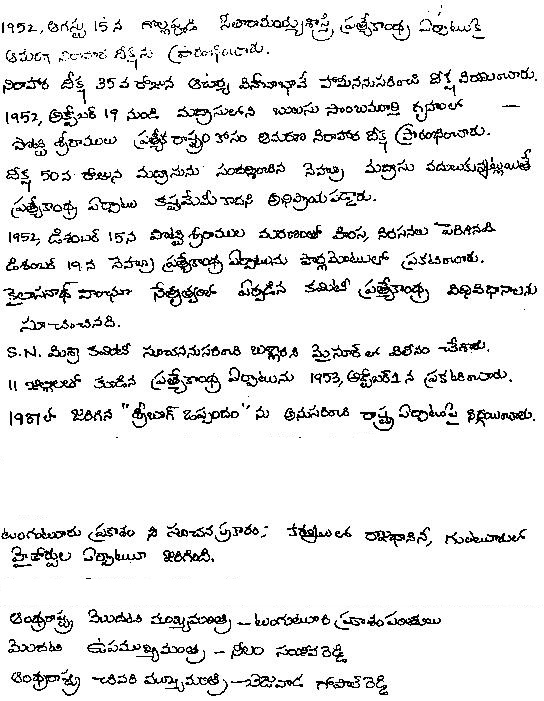 1952, ఆగస్టు 15 న గొల్లపూడి సీతారామయ్యశాస్త్రి ప్రత్యేకాంధ్ర ఏర్పాటుకై
ఆమరణ నిరాహార దీక్షను ప్రారంభించారు.
నిరాహార దీక్ష 35వ రోజున ఆచార్య వినోబాభావే హామీననుసరించి దీక్ష విరమించారు.
1952, అక్టోబర్ 19 నుండి మద్రాసులోని బులుసు సాంబమూర్తి గృహంలో –
పొట్టి శ్రీరాములు ప్రత్యేక రాష్ట్రం కోసం ఆమరణ నిరాహార దీక్ష ప్రారంభించారు.
దీక్ష 50వ రోజున మద్రాసును సందర్శించిన నెహ్రూ మద్రాసు వదులుకున్నట్లయితే
ప్రత్యేకాంధ్ర ఏర్పాటు కష్టమేమీ కాదని అభిప్రాయ పడ్డారు.
1952, డిశంబర్ 15న పొట్టి శ్రీరాముల మరణంతో హింస, నిరసనలు పెరిగినవి
డిశంబర్ 19 న నెహ్రూ ప్రత్యేకాంధ్ర ఏర్పాటును పార్లమెంటులో ప్రకటించారు.
కైలాసనాథ్ వాంఛూ నేతృత్వంలో ఏర్పడిన కమిటీ ప్రత్యేకాంధ్ర విధివిధానాలను
సూచించినది.
S.N. మిశ్రా కమిటీ సూచననుసరించి బళ్ళారిని మైసూర్ లో విలీనం చేశారు.
11 జిల్లాలతో కూడిన ప్రత్యేకాంధ్ర ఏర్పాటును 1953, అక్టోబర్ 1 న ప్రకటించారు.
1937లో జరిగిన "శ్రీబాగ్ ఒప్పందం" ను అనుసరించి రాష్ట్ర ఏర్పాటుపై నిర్ణయించారు.
టంగుటూరు ప్రకాశం ని సూచన ప్రకారం: కర్నూలులో రాజధానిని, గుంటూరులో
హైకోర్టుల ఏర్పాటు జరిగింది.
ఆంధ్రరాష్ట్ర మొదటి ముఖ్యమంత్రి – టంగుటూరి ప్రకాశం పంతులు
మొదటి ఉపముఖ్యమంత్రి – నీలం సంజీవ రెడ్డి
ఆంధ్రరాష్ట్ర చివరి ముఖ్యమంత్రి – బెజవాడ గోపాల్ రెడ్డి